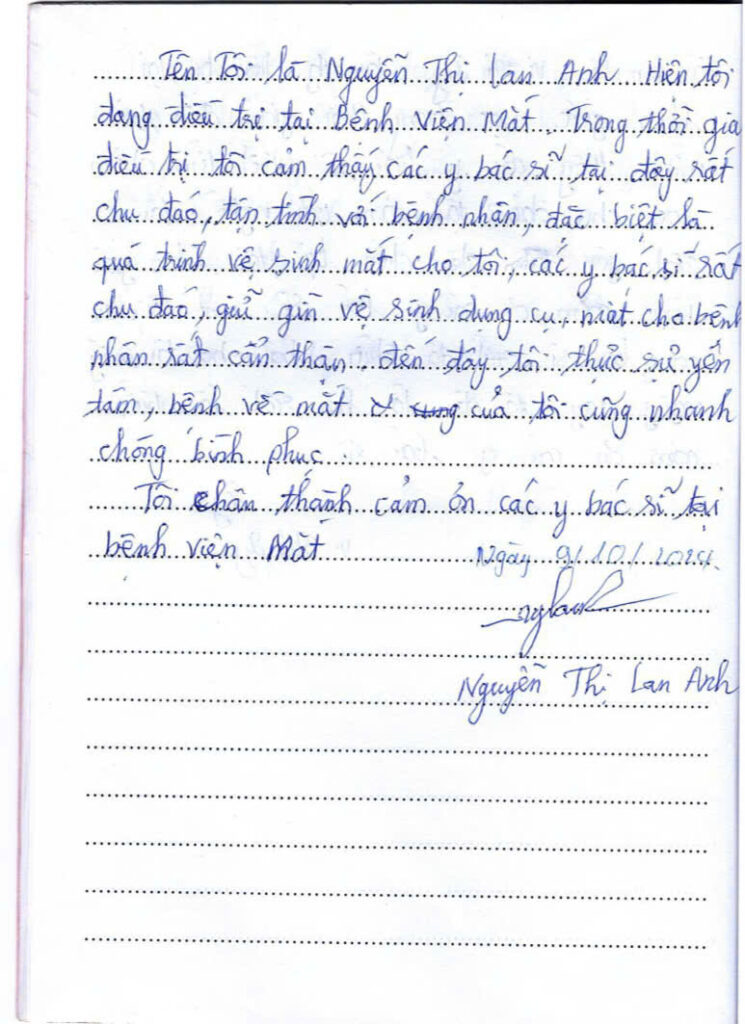 Tên Tôi là Nguyễn Thị Lan Anh Hiện tôi
đang điều trị tại Bệnh Viện Mắt. Trong thời gia
điều trị tôi cảm thấy các y bác sĩ tại đây rất
chu đáo, tận tình với bệnh nhân, đặc biệt là
quá trình vệ sinh mắt cho tôi, các y bác sĩ rất
chu đáo, giữ gìn vệ sinh dụng cụ, mắt cho bệnh
nhân rất cẩn thận, đến đây tôi thực sự yên
tâm, bệnh về mắt của tôi cũng nhanh
chóng bình phục.
Tôi chân thành cảm ơn các y bác sĩ tại
bệnh viện Mắt
Ngày 9/10/2024.
Nguyễn Thị Lan Anh